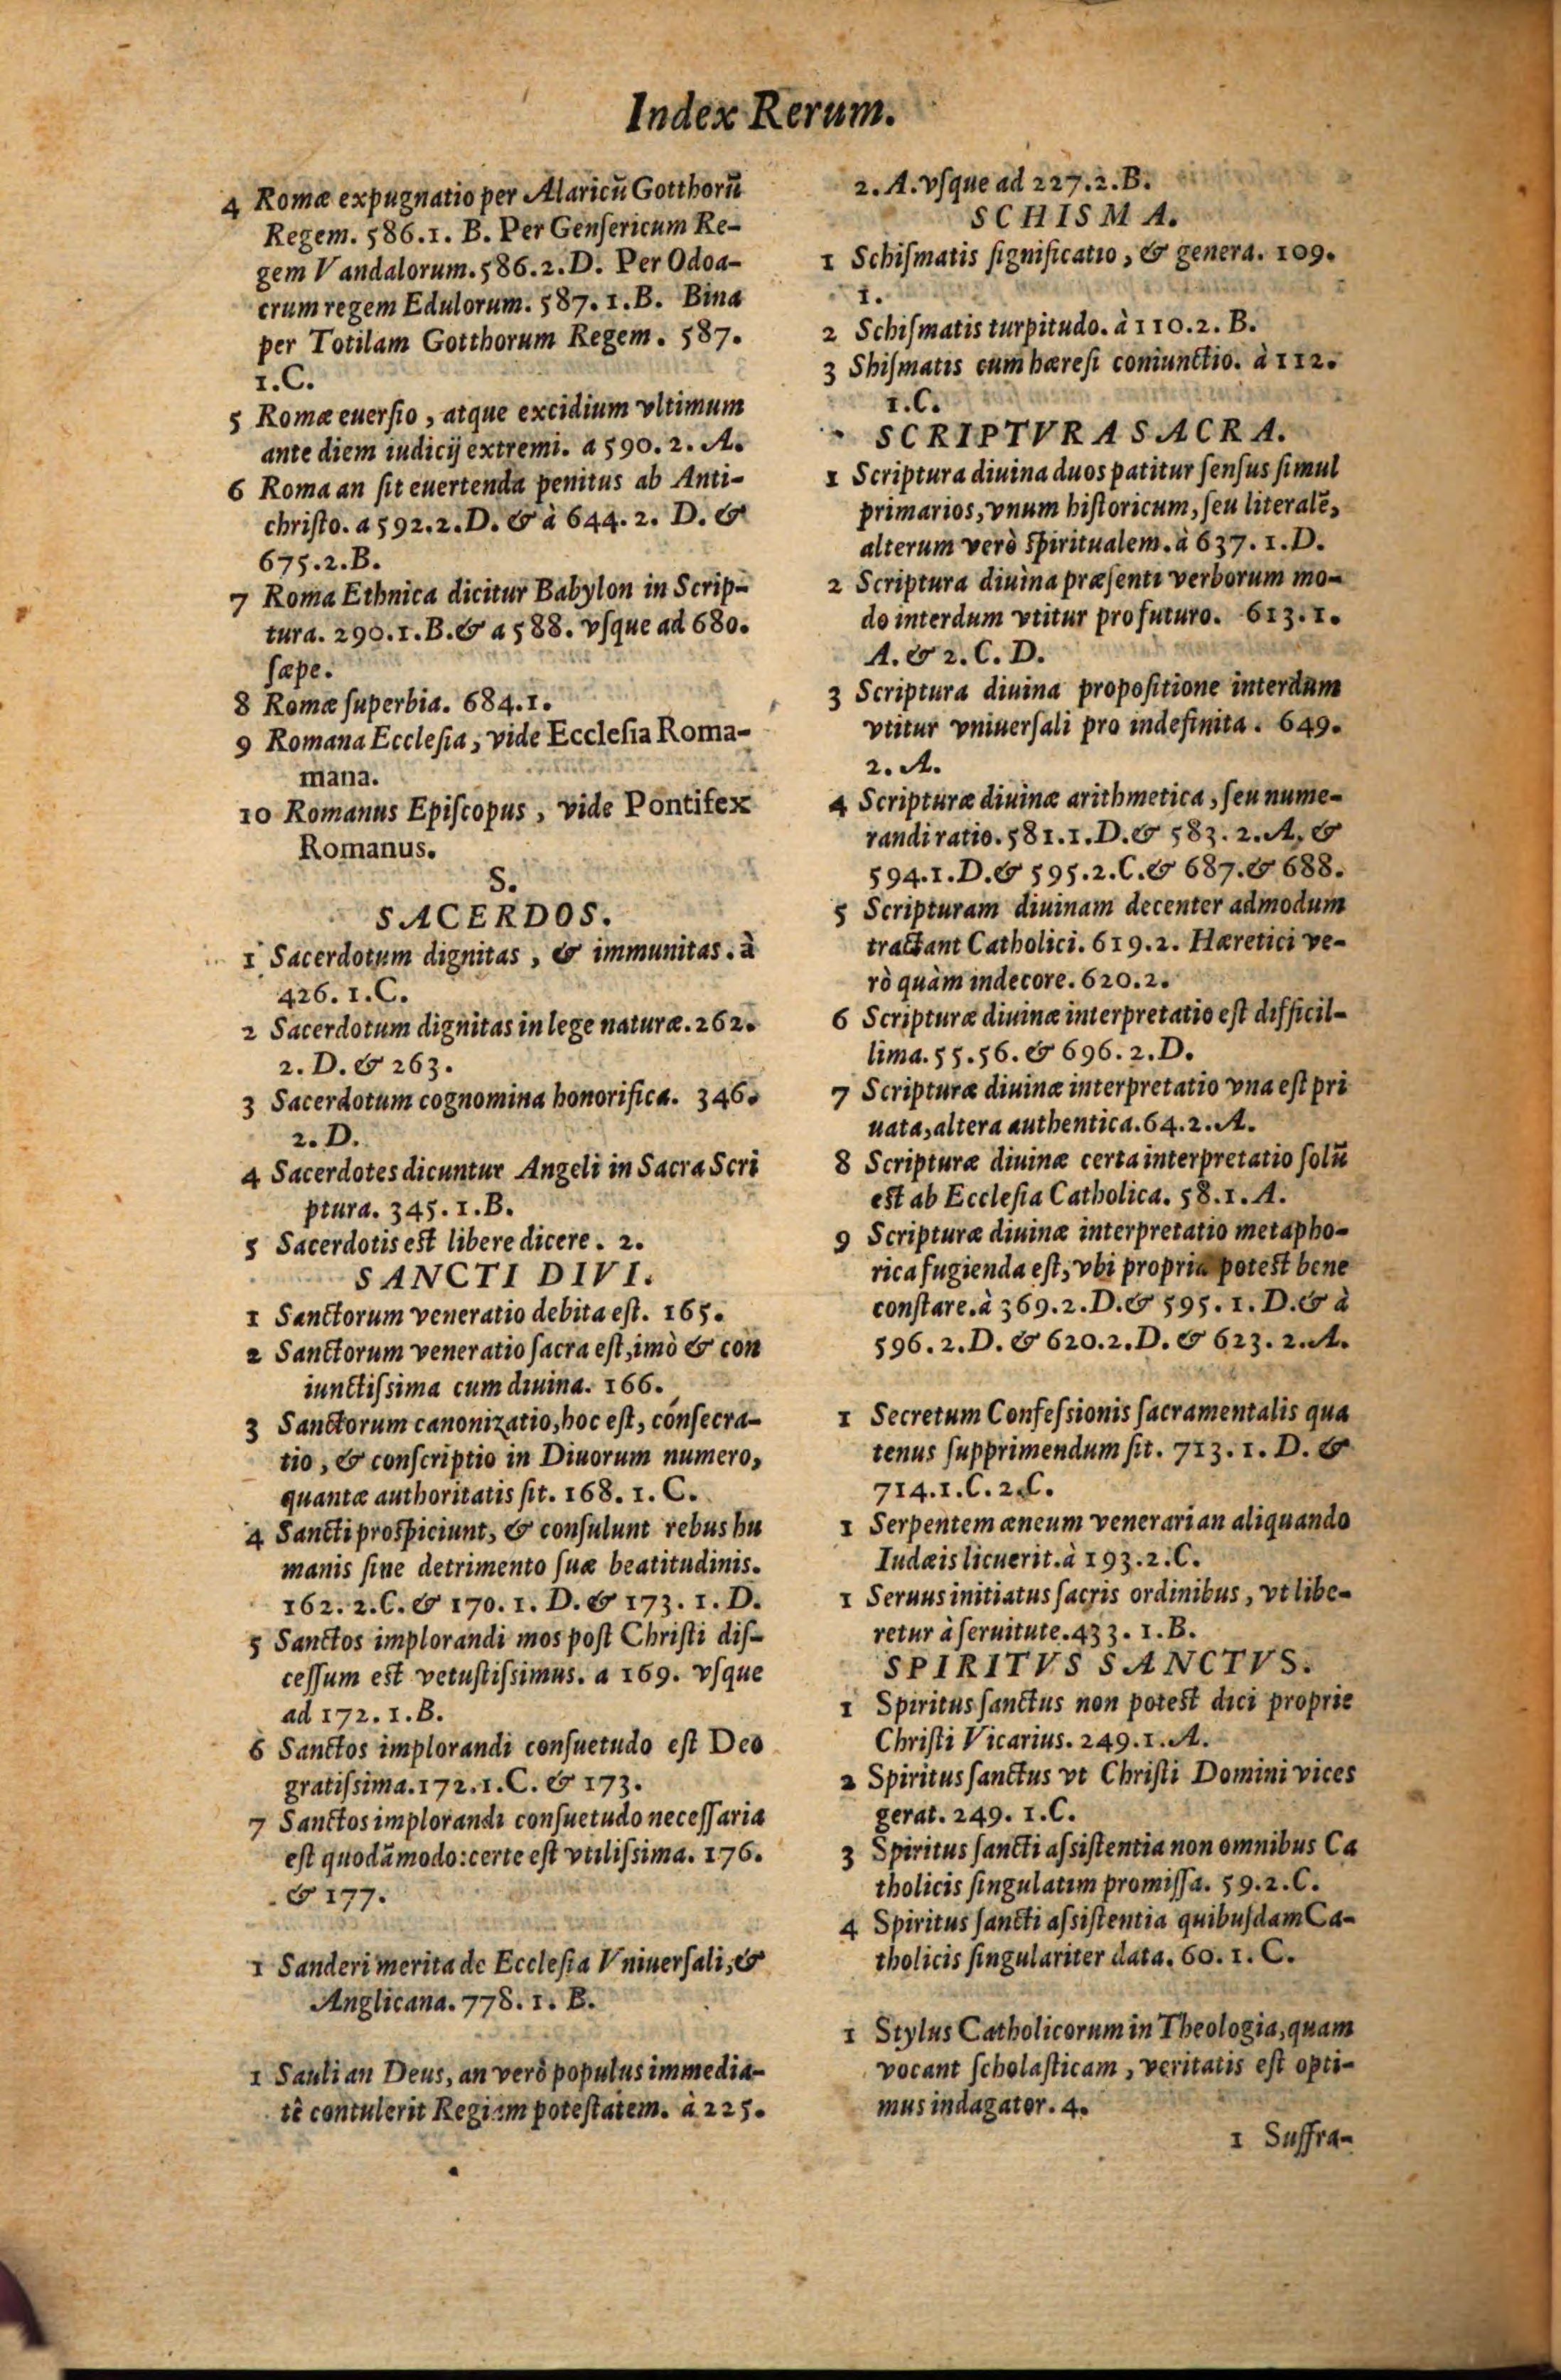 Index Rerum.
4 Romæ expugnatio per Alaricũ Gotthorũ
Regem. 586.1. B. Per Genſericum Re-
gem Vandalorum. 586.2.D. Per Odoa-
crum regem Edulorum. 587.1.B. Bina
per Totilam Gotthorum Regem. 587.
1.C.
5 Romæ euerſio, atque excidium vltimum
ante diem iudicij extremi. a 590. 2. A.
6 Roma an ſit euertenda penitus ab Anti-
chriſto. a 592.2.D. & à 644. 2. D. &
675.2.B.
7 Roma Ethnica dicitur Babylon in Scrip-
tura. 290.1.B. & a 588. vſque ad 680.
ſæpe.
8 Romæ ſuperbia. 684.1.
9 Romana Eccleſia, vide Eccleſia Roma-
mana.
10 Romanus Epiſcopus, vide Pontifex
Romanus.
S.
SACERDOS.
1 Sacerdotum dignitas, & immunitas. à
426. 1.C.
2 Sacerdotum dignitas in lege naturæ. 262.
2. D. & 263.
3 Sacerdotum cognomina honorifica. 346.
2. D.
4 Sacerdotes dicuntur Angeli in Sacra Scri
ptura. 345. 1.B.
5 Sacerdotis est libere dicere. 2.
SANCTI DIVI.
1 Sanctorum veneratio debita eſt. 165.
2 Sanctorum veneratio ſacra eſt, imò & con
iunctiſsima cum diuina. 166.
3 Sanctorum canonizatio, hoc eſt, conſecra-
tio, & conſcriptio in Diuorum numero,
quantæ authoritatis ſit. 168. 1. C.
4 Sancti proſpiciunt, & conſulunt rebus hu
manis ſine detrimento ſuæ beatitudinis.
162. 2.C. & 170. 1. D. & 173. 1. D.
5 Sanctos implorandi mos poſt Chriſti diſ-
ceſſum est vetuſtiſsimus. a 169. vſque
ad 172. 1.B.
6 Sanctos implorandi conſuetudo eſt Deo
gratiſsima. 172.1.C. & 173.
7 Sanctos implorandi conſuetudo neceſſaria
eſt quodãmodo: certe eſt vtiliſsima. 176.
& 177.
1 Sanderi merita de Eccleſia Vniuerſali, &
Anglicana. 778. 1. B.
1 Sauli an Deus, an verò populus immedia-
tè contulerit Regiam poteſtatem. à 225.
2. A. vſque ad 227.2.B.
SCHISMA.
1 Schiſmatis ſignificatio, & genera. 109.
1.
2 Schiſmatis turpitudo. à 110.2. B.
3 Shiſmatis cum hæreſi coniunctio. à 112.
1.C.
SCRIPTVRA SACRA.
1 Scriptura diuina duos patitur ſenſus ſimul
primarios, vnum hiſtoricum, ſeu literalẽ,
alterum verò ſpiritualem. à 637. 1.D.
2 Scriptura diuina præſenti verborum mo-
do interdum vtitur pro futuro. 613.1.
A. & 2. C. D.
3 Scriptura diuina propoſitione interdum
vtitur vniuerſali pro indefinita. 649.
2. A.
4 Scripturæ diuinæ arithmetica, ſeu nume-
randi ratio. 581.1.D. & 583. 2.A. &
594.1.D. & 595.2.C. & 687. & 688.
5 Scripturam diuinam decenter admodum
tractant Catholici. 619.2. Hæretici ve-
rò quàm indecore. 620.2.
6 Scripturæ diuinæ interpretatio eſt difficil-
lima. 55.56. & 696. 2.D.
7 Scripturæ diuinæ interpretatio vna eſt pri
uata, altera authentica. 64.2.A.
8 Scripturæ diuinæ certa interpretatio ſolũ
est ab Eccleſia Catholica. 58.1.A.
9 Scripturæ diuinæ interpretatio metapho-
rica fugienda eſt, vbi propria potest bene
conſtare. à 369.2.D. & 595. 1. D. & à
596.2.D. & 620.2.D. & 623. 2.A.
1 Secretum Confeſsionis ſacramentalis qua
tenus ſupprimendum ſit. 713. 1. D. &
714.1.C. 2.C.
1 Serpentem æneum venerari an aliquando
Iudæis licuerit. à 193.2.C.
1 Seruus initiatus ſacris ordinibus, vt libe-
retur à ſeruitute. 433. 1.B.
SPIRITVS SANCTVS.
1 Spiritus ſanctus non potest dici proprie
Chriſti Vicarius. 249.1.A.
2 Spiritus ſanctus vt Chriſti Domini vices
gerat. 249. 1.C.
3 Spiritus ſancti aſsiſtentia non omnibus Ca
tholicis ſingulatim promiſſa. 59.2.C.
4 Spiritus ſancti aſsiſtentia quibuſdam Ca-
tholicis ſingulariter data. 60. 1. C.
1 Stylus Catholicorum in Theologia, quam
vocant ſcholaſticam, veritatis eſt opti-
mus indagator. 4.
1 Suffra-